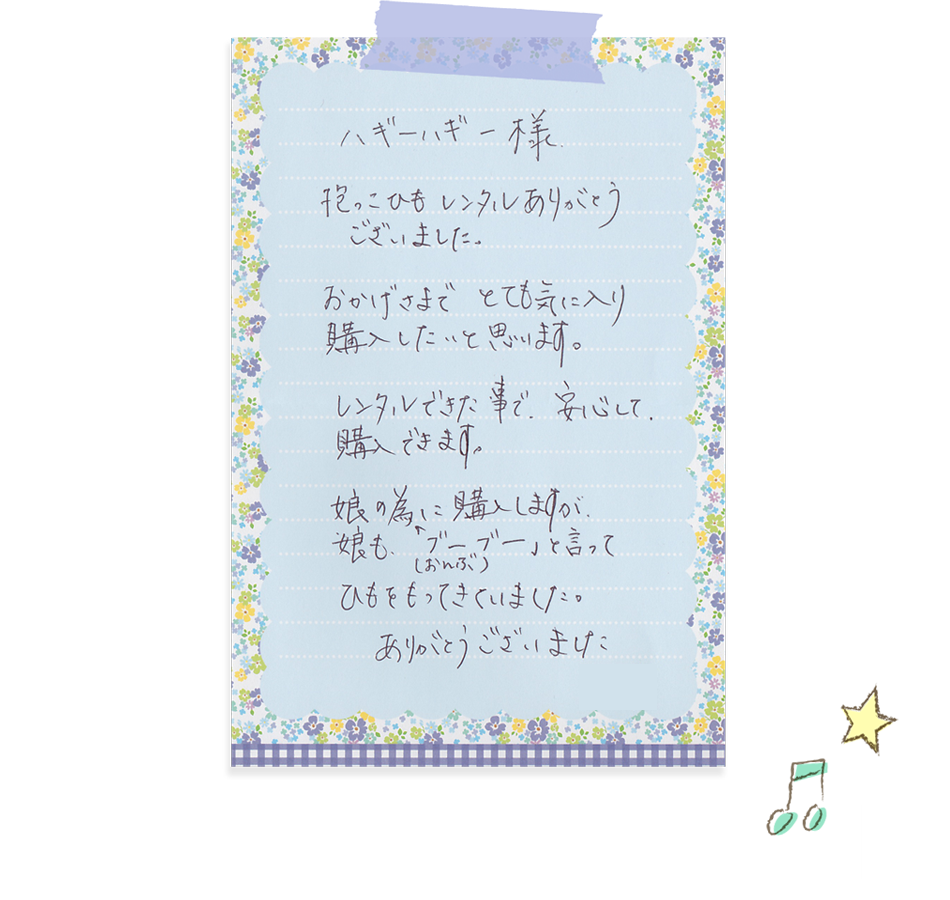 ハギーハギー様
抱っこひもレンタルありがとう
ございました。
おかげさまで とても気に入り
購入したいと思います。
レンタルできた事で、安心して、
購入できます。
娘の為に購入しますが、
娘も、「ブーブー」と言って
(おんぶ)
ひもをもってきていました。
ありがとうございました